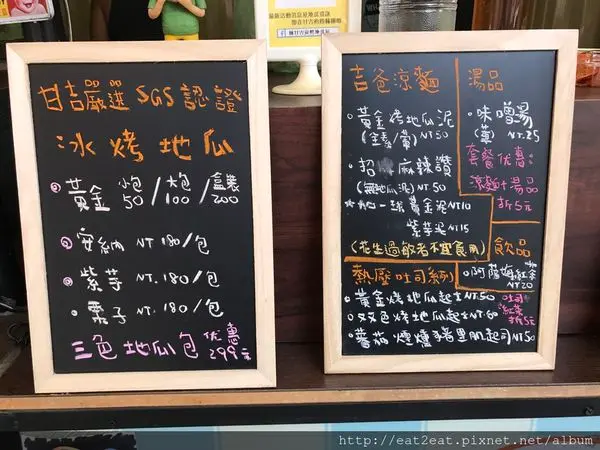 甘吉嚴選 SGS 認證
冰烤地瓜
黃金 小炮 50 / 大炮 100 / 盒裝 200
安納 NT 180/包
紫芋 NT. 180/包
栗子 NT. 180/包
三色地瓜包 优惠 299元
吉爸涼麵
黃金烤地瓜泥
(全素/葷) NT 50
招 麻辣讚
(無地瓜泥) NT 50
加一球 黃金泥 NT10
紫芋泥 NT15
(花生過敏者不宜食用)
湯品
味噌湯
(葷) NT. 25
套餐优惠:
涼麵+湯品
折5元
飲品
阿薩姆紅茶
NT20
熱壓吐司
黃金烤地瓜起士 NT.50
双色烤地瓜起士 NT.60
蕃茄燻 里肌起司 NT.50
吐司
紅茶
折5元
http://eat2eat.pixnet.net/album